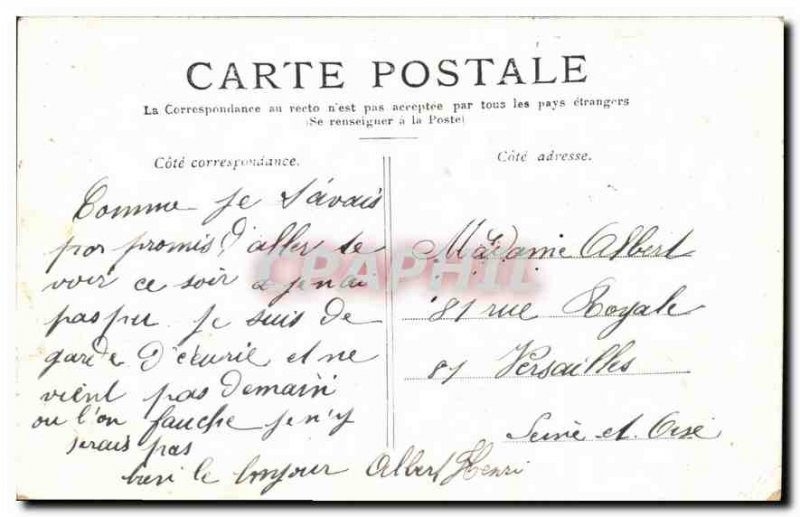 CARTE POSTALE
La Correspondance au recto n'est pas acceptée par tous les pays étrangers
(Se renseigner à la Poste)
Côté correspondance.
Côté adresse.
Comme je t'avais
pas promis d'aller te
voir ce soir je n'ai
pas pu je suis de
garde d'écurie et ne
vient pas demain
ou l'on fauche je n'y
serais pas
bien le bonjour Albert Henri
Madame Albert
81 rue Royale
81 Versailles
Seine et Oise
CPAPHIL